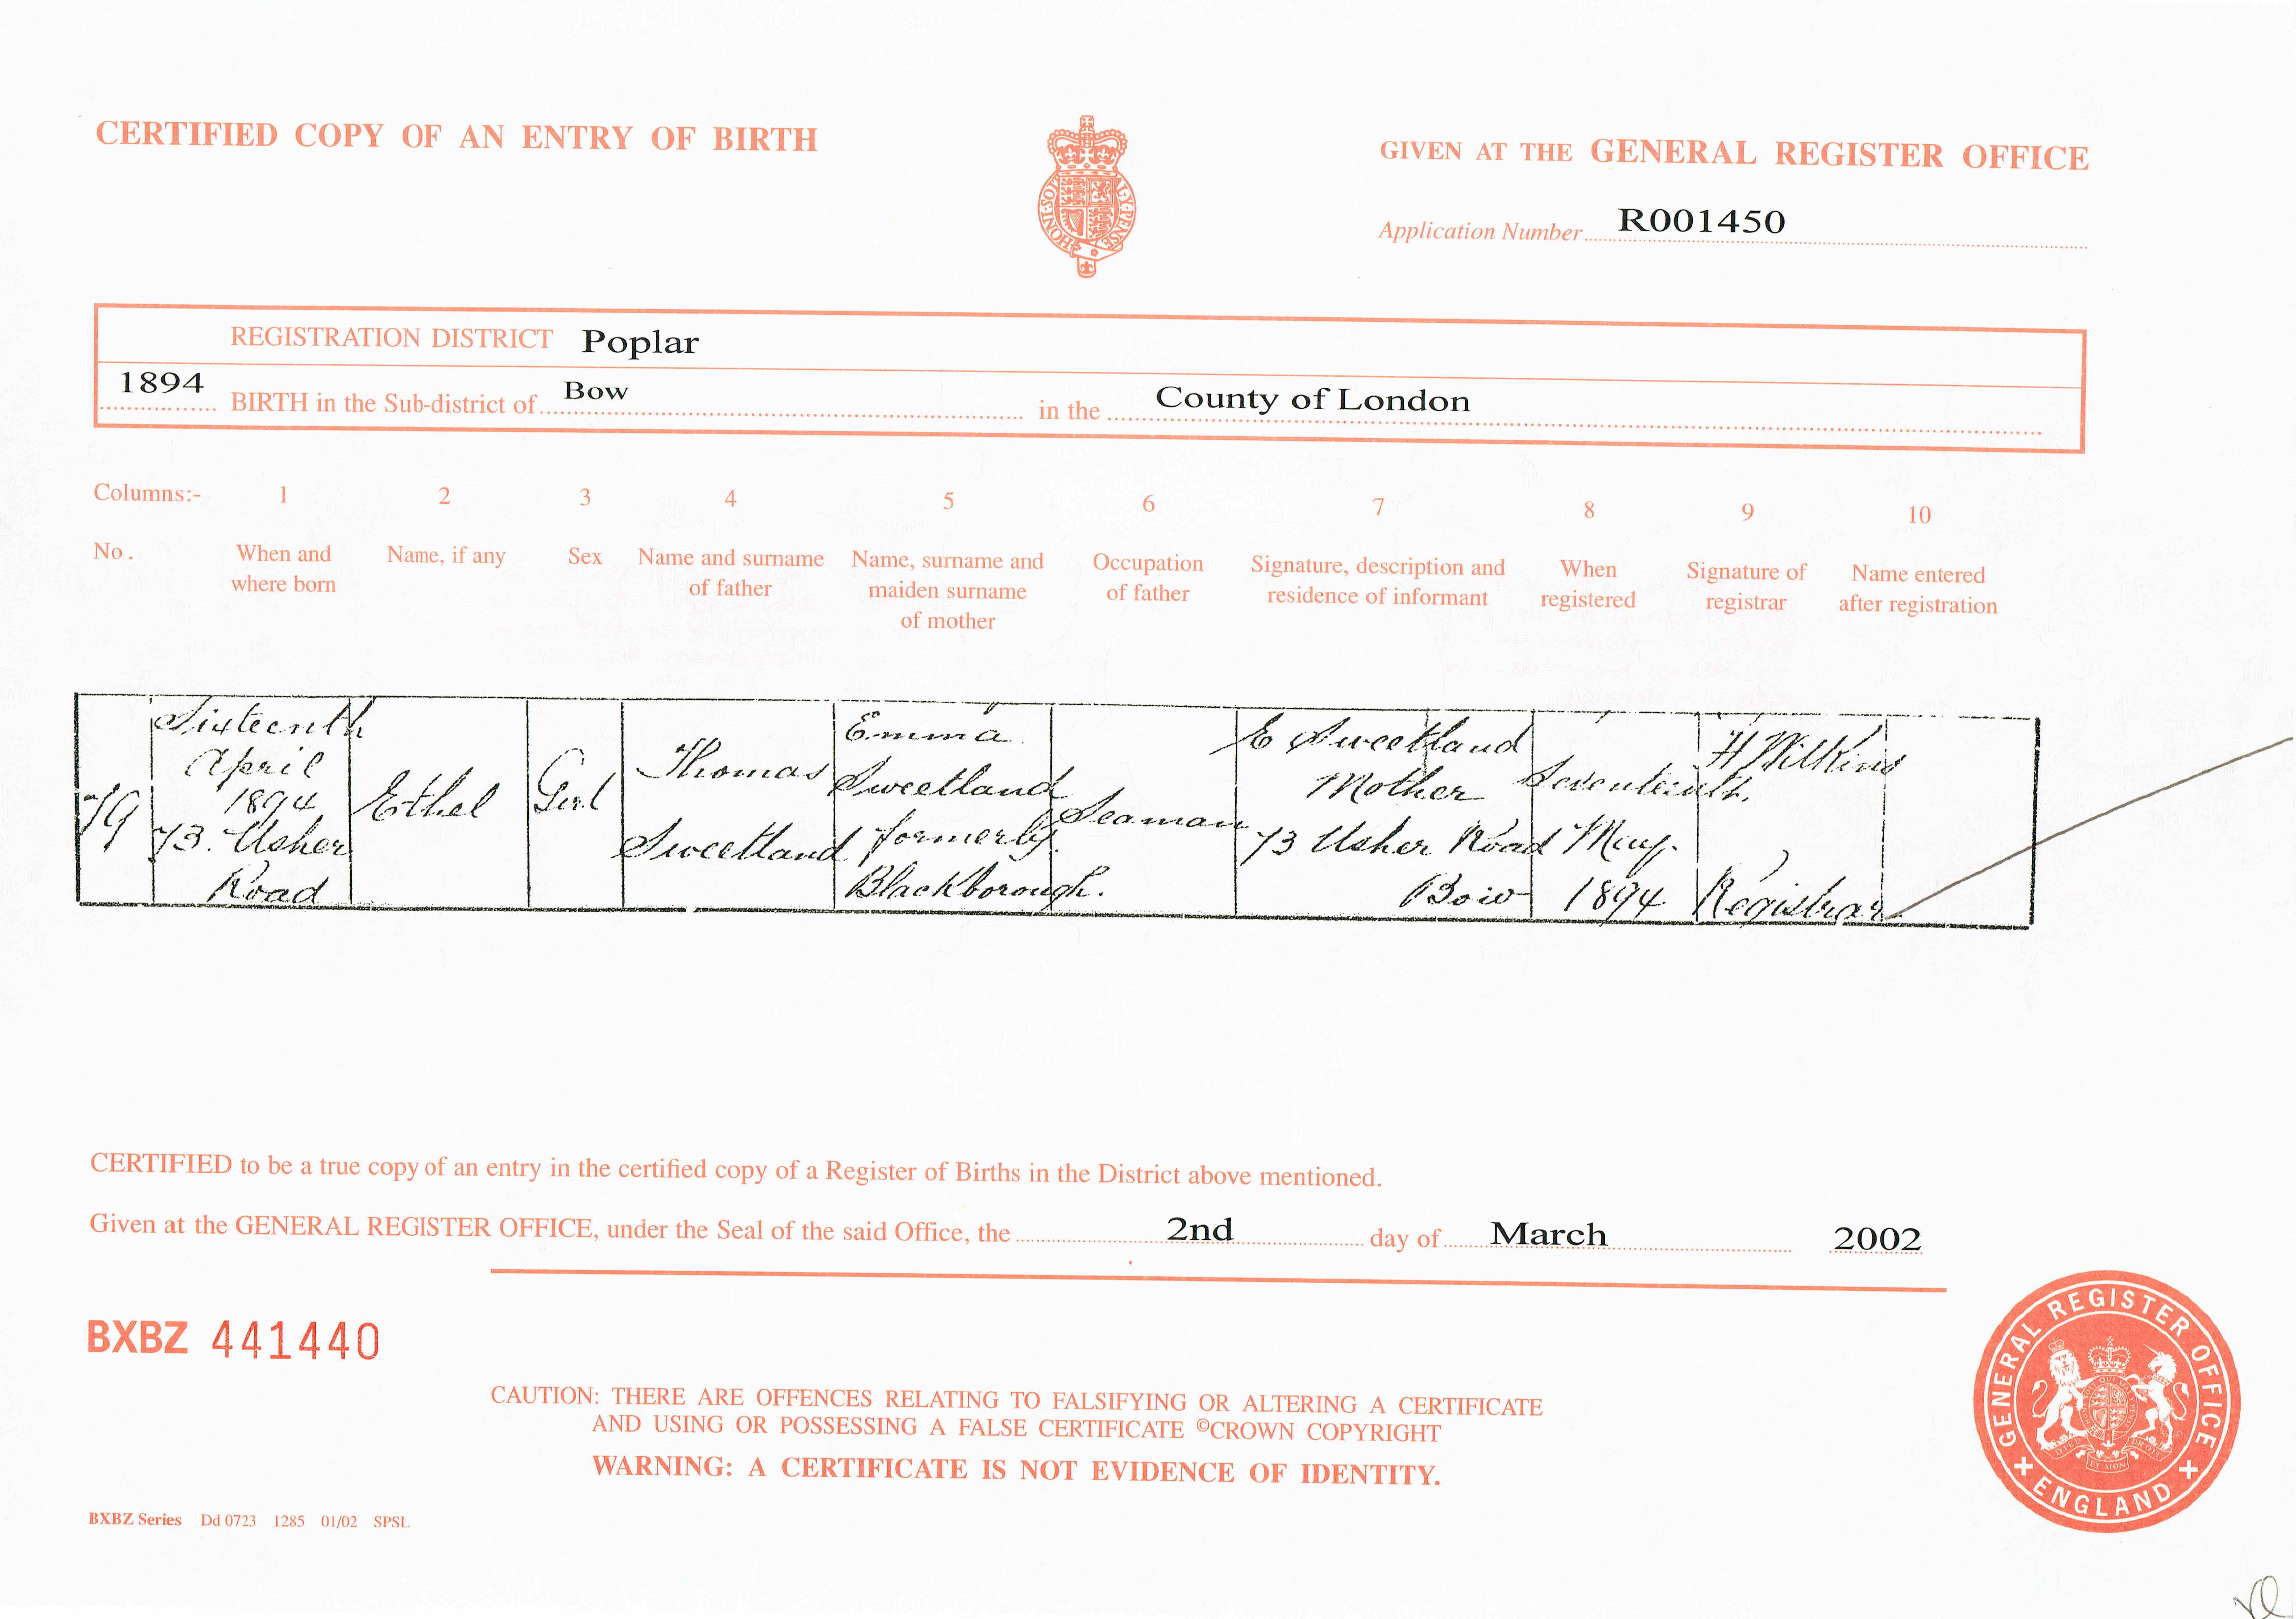 CERTIFIED COPY OF AN ENTRY OF BIRTH
GIVEN AT THE GENERAL REGISTER OFFICE
HONI·SOIT AL·Y·PENSE
Application Number R001450
REGISTRATION DISTRICT Poplar
1894 BIRTH in the Sub-district of Bow in the County of London
Columns:- 1 2 3 4 5 6 7 8 9 10
No. When and where born
Name, if any
Sex
Name and surname of father
Name, surname and maiden surname of mother
Occupation of father
Signature, description and residence of informant
When registered
Signature of registrar
Name entered after registration
79
Sixteenth
April
1894
73. Usher
Road
Ethel
Girl
Thomas
Sweetland
Emma
Sweetland
formerly
Blackborough.
Seaman
E Sweetland
Mother
73 Usher Road
Bow
Seventeenth
May
1894
H Wilkins
Registrar
CERTIFIED to be a true copy of an entry in the certified copy of a Register of Births in the District above mentioned.
Given at the GENERAL REGISTER OFFICE, under the Seal of the said Office, the 2nd day of March 2002
BXBZ 441440
CAUTION: THERE ARE OFFENCES RELATING TO FALSIFYING OR ALTERING A CERTIFICATE
AND USING OR POSSESSING A FALSE CERTIFICATE ©CROWN COPYRIGHT
WARNING: A CERTIFICATE IS NOT EVIDENCE OF IDENTITY.
GENERAL REGISTER OFFICE
ENGLAND
BXBZ Series Dd 0723 1285 01/02 SPSL